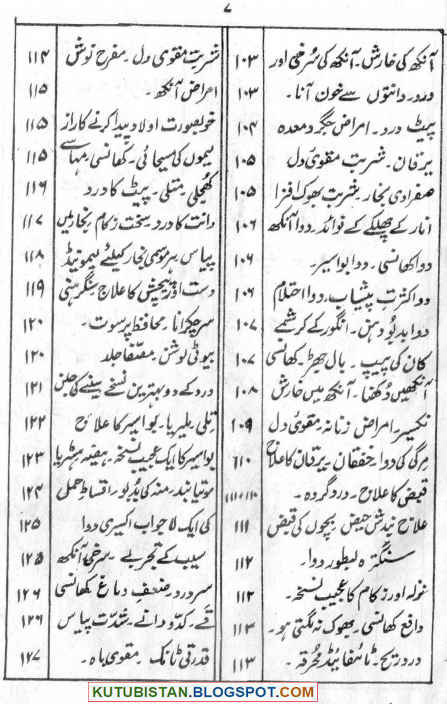 ۷
آنکھ کی خارش۔ آنکھ کی سُرخی اور ۱۰۳
درد۔ دانتوں سے خون آنا۔ ۱۰۳
پیٹ درد۔ امراض جگر و معدہ ۱۰۴
یرقان۔ شربت مقوی دل ۱۰۵
صفراوی بخار۔ شربت بھوک فزا ۱۰۵
انار کے چھلکے کے فوائد۔ دوا آنکھ ۱۰۶
دوا کھانسی۔ دوا بواسیر۔ ۱۰۶
دوا کثرت پیشاب۔ دوا احتلام ۱۰۶
دوا بدبو دہن۔ انگور کے کرشمے ۱۰۷
کان کی پیپ۔ بال جھڑ۔ کھانسی ۱۰۷
آنکھیں دُکھنا۔ آنکھ میں خارش ۱۰۸
نکسیر۔ امراض زنانہ۔ مقوی دل ۱۰۹
مرگی کی دوا۔ خفقان۔ یرقان کا علاج ۱۱۰
قبض کا علاج۔ درد گردہ۔ ۱۱۰،۱۱۱
علاج بندش حیض۔ بچوں کی قبض ۱۱۱
سنگترہ بطور دوا۔ ۱۱۲
نزلہ اور زکام کا عجیب نسخہ۔ ۱۱۲
دافع کھانسی۔ بھوک نہ لگتی ہو۔ ۱۱۳
درد ریح۔ ٹائیفائیڈ محرقہ۔ ۱۱۳
شربت مقوی دل۔ مفرح نوش ۱۱۴
امراض آنکھ۔ ۱۱۵
خوبصورت اولاد پیدا کرنے کا راز ۱۱۵
لیموں کی مسیحائی۔ کھانسی مہاسے ۱۱۵
کھجلی متلی۔ پیٹ کا درد ۱۱۶
دانت کا درد۔ سخت زکام بخار میں ۱۱۷
پیاس۔ موسمی بخار کیلئے لیمونیڈ ۱۱۸
دست اور پیچش کا علاج سنگرہنی ۱۱۹
سر چکرانا۔ محافظ پرسوت۔ ۱۲۰
بیوٹی لوشن۔ مصفّا جلد ۱۲۰
درد کے دو بہترین نسخے سینے کی جلن ۱۲۱
تلی۔ ملیریا۔ بواسیر کا علاج ۱۲۲
بواسیر کا ایک عجیب نسخہ۔ ہیضہ ہسٹریا ۱۲۳
موتیا بند۔ منہ کی بدبو۔ اسقاط حمل ۱۲۴
کی ایک لاجواب اکسیری دوا ۱۲۵
سیب کے تجربے۔ سرخی آنکھ ۱۲۵
سر درد۔ ضعف دماغ کھانسی ۱۲۶
قے۔ کدّو دانے۔ شدّت پیاس ۱۲۶
قدرتی ٹانک۔ مقوی باہ۔ ۱۲۷
KUTUBISTAN.BLOGSPOT.COM